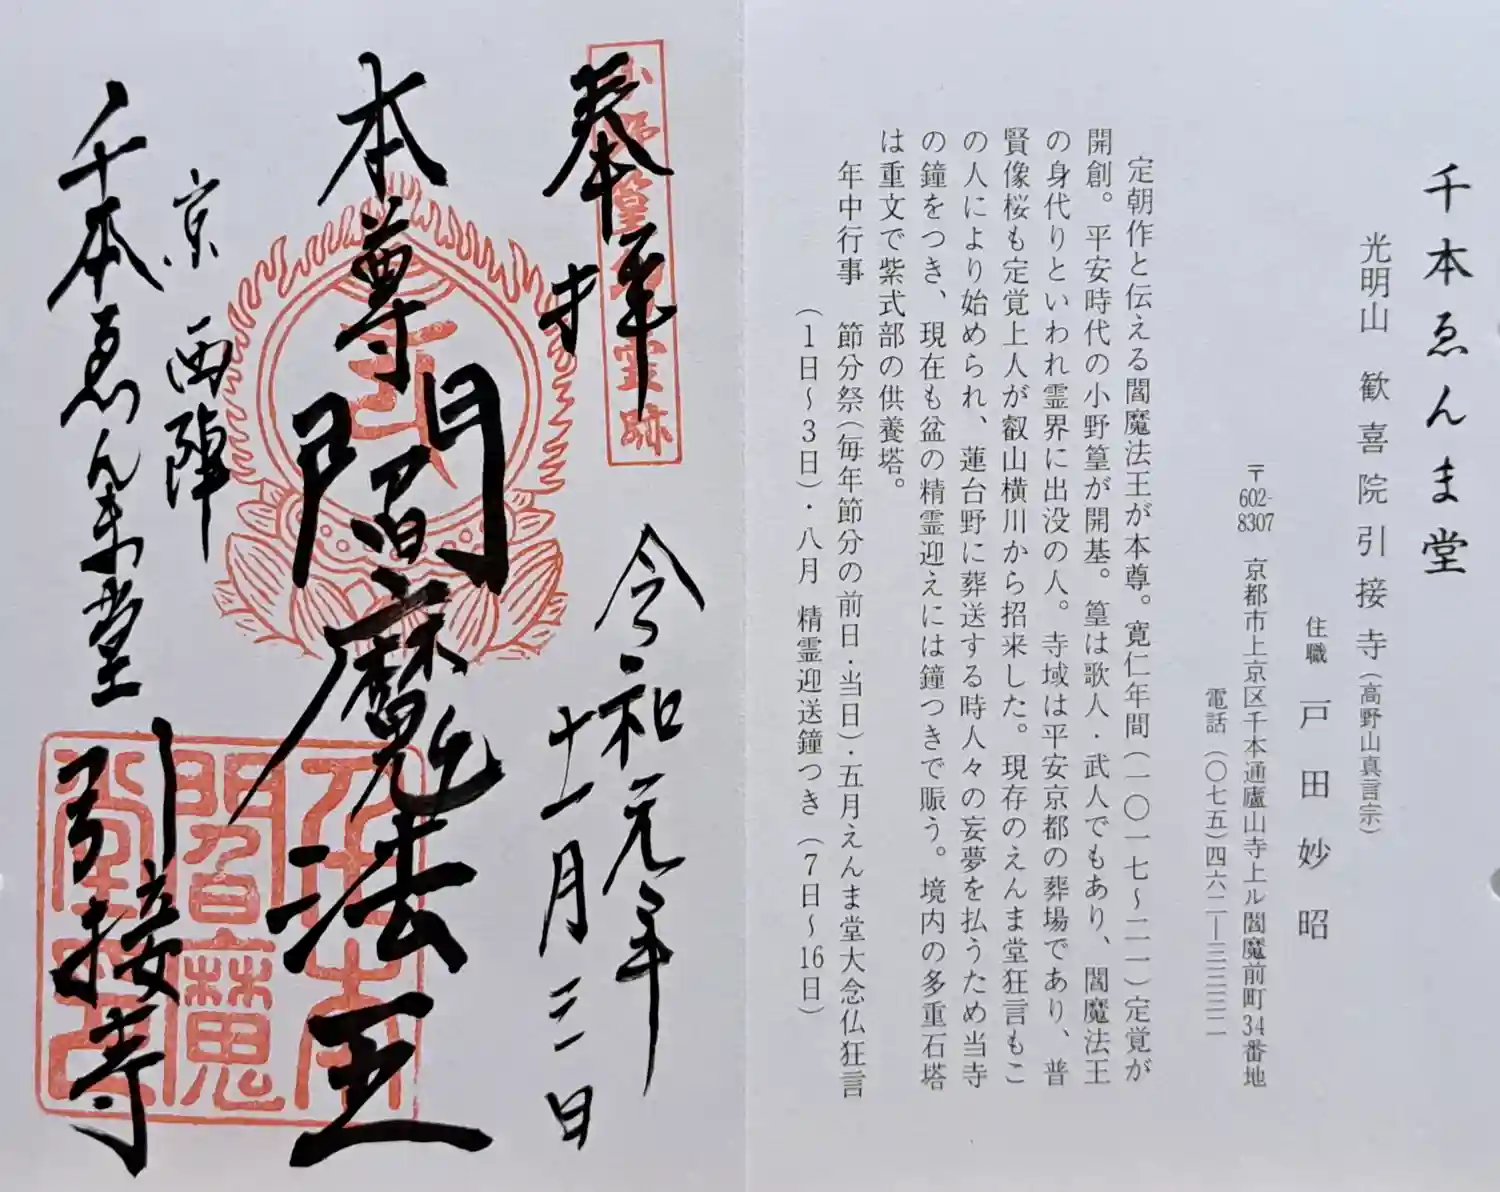 千本ゑんま堂
光明山 歓喜院引接寺(高野山真言宗)
住職 戸田妙昭
〒602-8307 京都市上京区千本通廬山寺上ル閻魔前町34番地
電話(〇七五)四六二―三三三二
定朝作と伝える閻魔法王が本尊。寛仁年間(一〇一七〜二一)定覚が
開創。平安時代の小野篁が開基。篁は歌人・武人でもあり、閻魔法王
の身代りといわれ霊界に出没の人。寺域は平安京都の葬場であり、普
賢像桜も定覚上人が叡山横川から招来した。現存のえんま堂狂言もこ
の人により始められ、蓮台野に葬送する時人々の妄夢を払うため当寺
の鐘をつき、現在も盆の精霊迎えには鐘つきで賑う。境内の多重石塔
は重文で紫式部の供養塔。
年中行事 節分祭(毎年節分の前日・当日)・五月えんま堂大念仏狂言
(1日〜3日)・八月 精霊迎送鐘つき(7日〜16日)
奉拝
小野篁 霊跡
令和元年
十一月三日
本尊 閻魔法王
京 西陣
千本ゑんま堂 引接寺
閻魔
堂